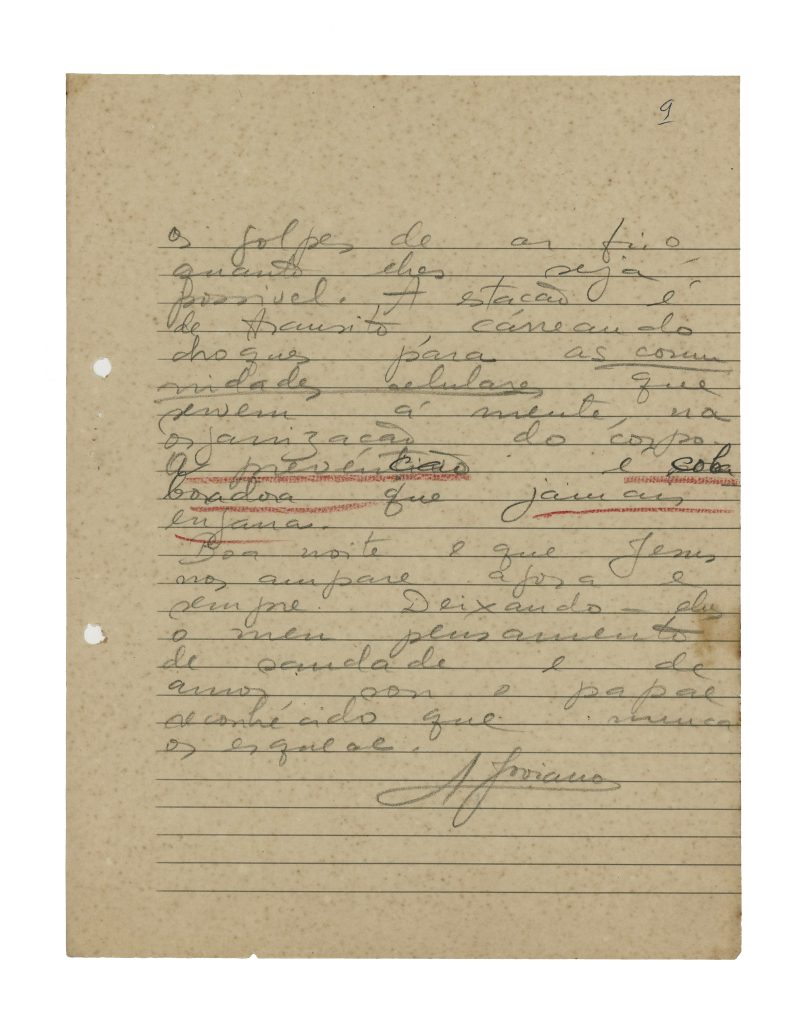 9
os golpes de ar frio
quanto lhes seja
possivel. A estacão é
de transito, carreando
choques para as comu
nidades celulares que
servem á mente, na
organizacão do corpo.
A prevencão é cola
boradora que jamais
engana.
Boa noite e que Jesus
nos ampare agora e
sempre. Deixando-lhes
o meu pensamento
de saudade e de
amor sou o papae
reconhecido que nunca
os esquece.
A Joviano